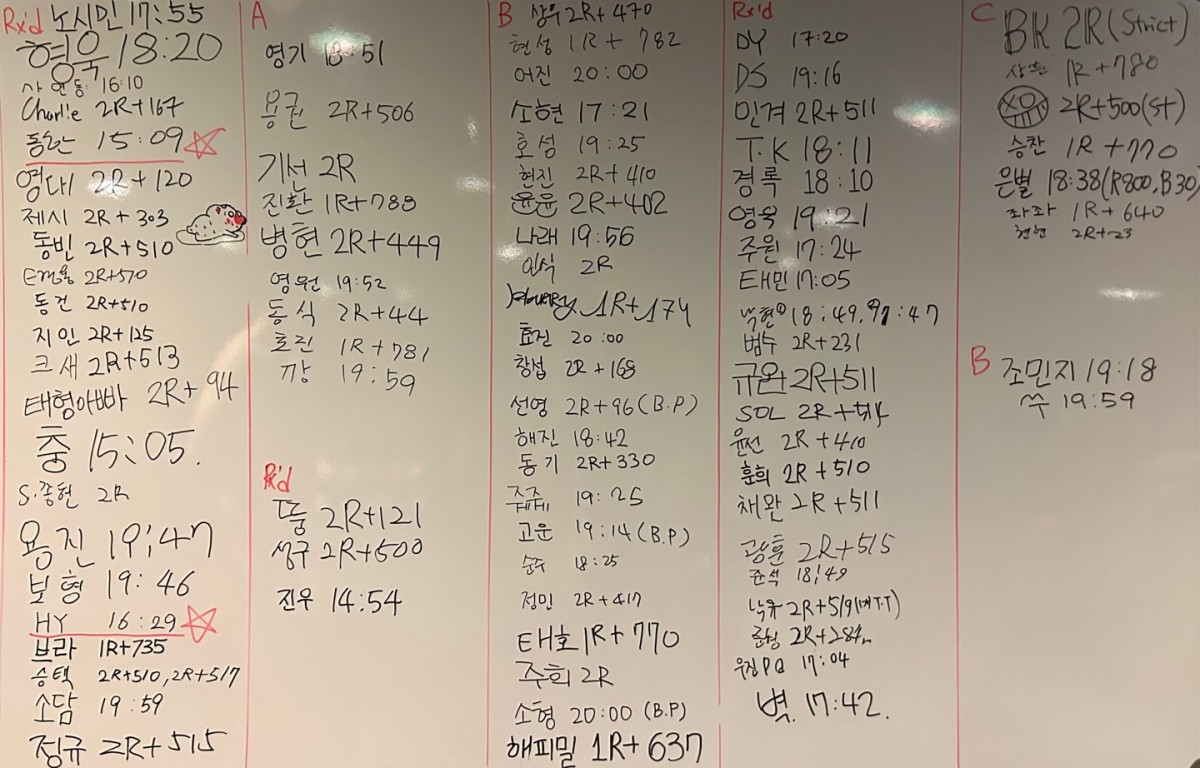 Rx'd 노시민 17:55
형욱 18:20
16:10
Charlie 2R+167
동환 15:09
영대 2R+120
제시 2R+303
동빈 2R+510
2R+570
동건 2R+510
지인 2R+125
크새 2R+513
태형아빠 2R+94
충 15:05.
S.종현 2R
용진 19:47
보형 19:46
HY 16:29
브라 1R+735
승택 2R+510, 2R+517
소담 19:59
정규 2R+515
A
영기 18:51
용권 2R+506
기서 2R
진환 1R+788
병현 2R+449
영원 19:52
동식 2R+44
호진 1R+781
깡 19:59
Rx'd
뚱 2R+121
성구 2R+500
진우 14:54
B 상우 2R+470
현성 1R+782
어진 20:00
소현 17:21
호성 19:25
현진 2R+410
윤윤 2R+402
나래 19:56
인식 2R
1R+174
효진 20:00
창섭 2R+168
선영 2R+96(B.P)
해진 18:42
동기 2R+330
19:25
고운 19:14(B.P)
순주 18:25
정민 2R+417
태호 1R+770
주희 2R
소형 20:00 (B.P)
해피밀 1R+637
Rx'd
DY 17:20
DS 19:16
민겨 2R+511
T.K 18:11
경록 18:10
영욱 19:21
주원 17:24
태민 17:05
낙현 18:49,
범수 2R+231
규완 2R+511
SOL 2R+
윤선 2R+410
훈희 2R+510
채완 2R+511
광훈 2R+515
준석 18:49
낙유 2R+519
2R+
우정PQ 17:04
벽. 17:42.
C
BK 2R(Strict)
상훈 1R+780
2R+500(St)
승찬 1R+770
은별 18:38(R800, B30
좌좌 1R+640
2R+23
B 조민지 19:18
쑤 19:59